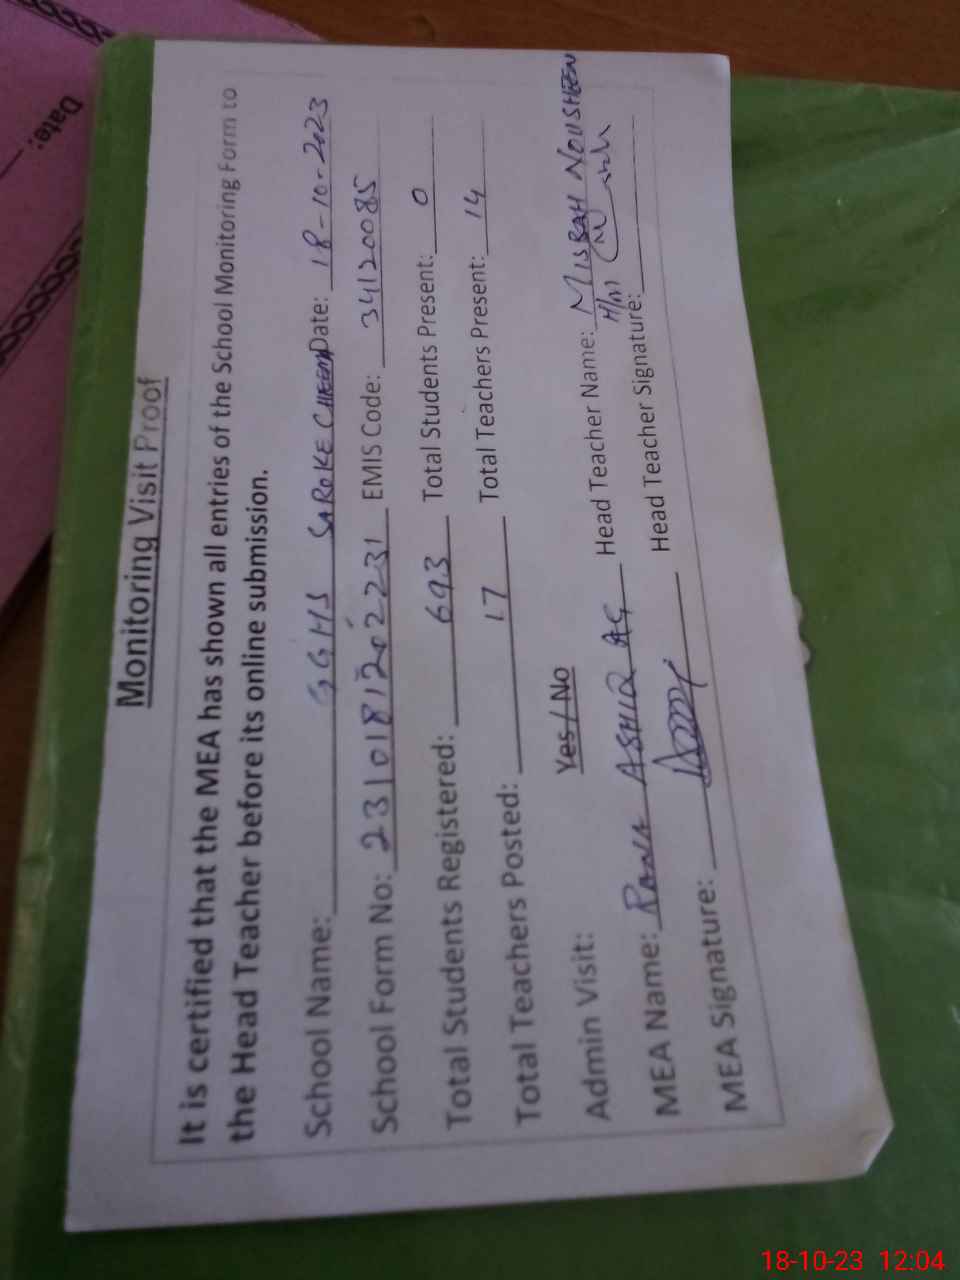 Date:
Monitoring Visit Proof
It is certified that the MEA has shown all entries of the School Monitoring Form to
the Head Teacher before its online submission.
School Name: GGHS SAROKE CHEEMA Date: 18-10-2023
School Form No: 23101812022231 EMIS Code: 34120085
Total Students Registered: 693 Total Students Present: 0
Total Teachers Posted: 17 Total Teachers Present: 14
Admin Visit: Yes / No
MEA Name: RANA ASHIQ Head Teacher Name: MISBAH NOUSHEEN
H/M
MEA Signature: Head Teacher Signature:
18-10-23 12:04